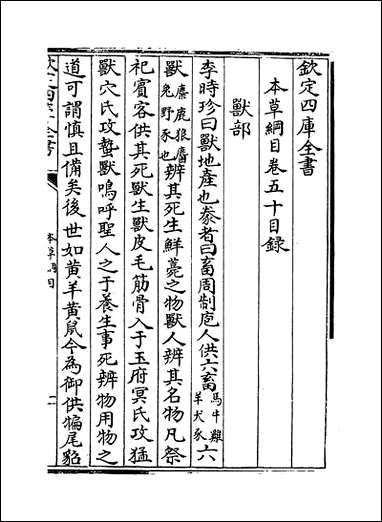 欽定四庫全書
本草綱目卷五十目錄
獸部
李時珍曰獸地產也豢者曰畜周制庖人供六畜馬牛雞羊犬豕六
獸麋鹿狼麕兔野豕也辨其死生鮮薧之物獸人辨其名物凡祭
祀賓客供其死獸生獸皮毛筋骨入于玉府冥氏攻猛
獸穴氏攻蟄獸嗚呼聖人之于養生事死辨物用物之
道可謂慎且備矣後世如黃羊黃鼠今為御供犏尾貂
欽定四庫全書
本草綱目